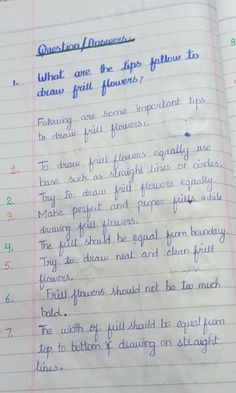 Question/Answers:
1. What are the tips follow to
draw frill flowers?
Following are some important tips
to draw frill flowers:
1. To draw frill flowers equally use
base such as straight lines or circles.
2. Try to draw frill flowers equally.
3. Make perfect and proper frills while
drawing frill flowers.
4. The frill should be equal from boundary.
5. Try to draw neat and clean frill
flowers.
6. Frill flowers should not be too much
bold.
7. The width of frill should be equal from
top to bottom if drawing on straight
lines.